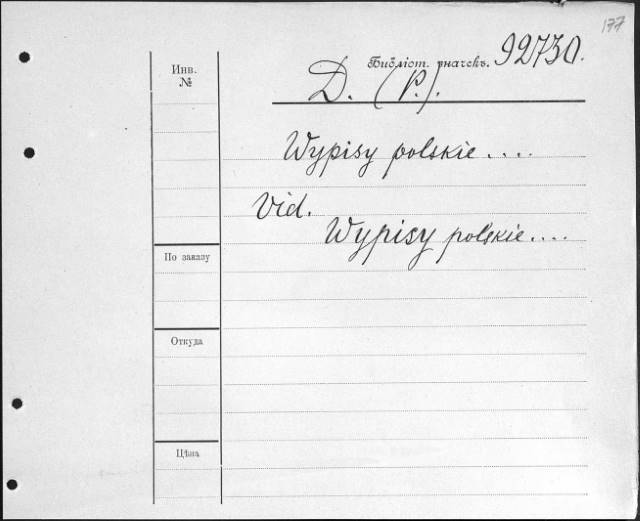 177
Библіот. значекъ. 92730.
Инв.
№
D. (P.).
Wypisy polskie....
Vid.
Wypisy polskie....
По заказу
Откуда
Цѣна